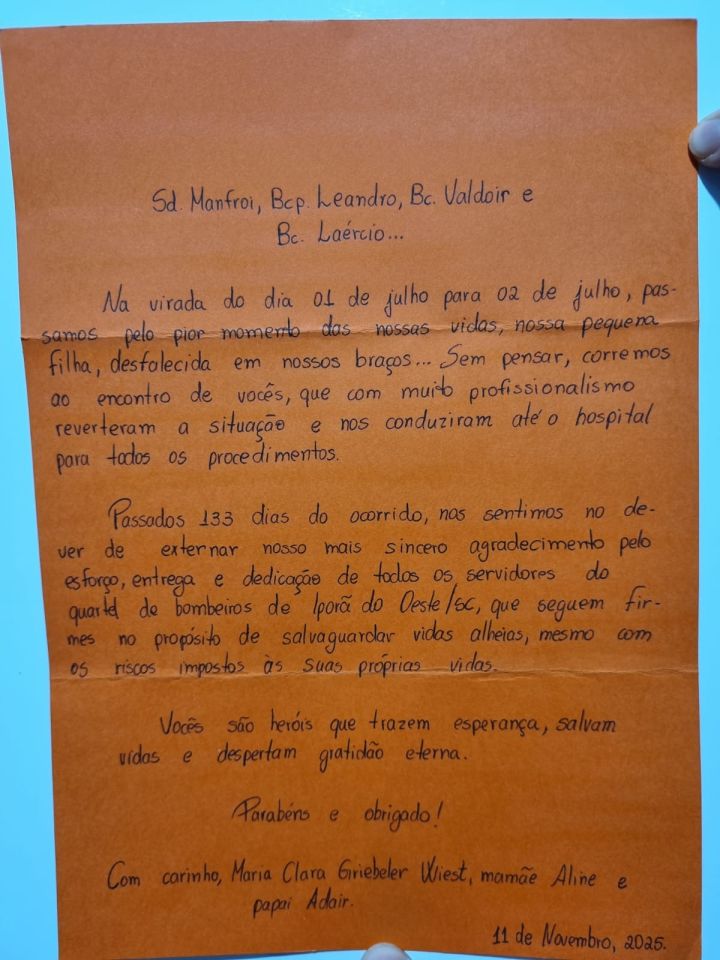 Sd. Manfroi, Bcp. Leandro, Bc. Valdoir e
Bc. Laércio...
Na virada do dia 01 de julho para 02 de julho, pas-
samos pelo pior momento das nossas vidas, nossa pequena
filha, desfalecida em nossos braços... Sem pensar, corremos
ao encontro de vocês, que com muito profissionalismo
reverteram a situação e nos conduziram até o hospital
para todos os procedimentos.
Passados 133 dias do ocorrido, nos sentimos no de-
ver de externar nosso mais sincero agradecimento pelo
esforço, entrega e dedicação de todos os servidores do
quartel de bombeiros de Iporã do Oeste/SC, que seguem fir-
mes no propósito de salvaguardar vidas alheias, mesmo com
os riscos impostos às suas próprias vidas.
Vocês são heróis que trazem esperança, salvam
vidas e despertam gratidão eterna.
Parabéns e obrigado!
Com carinho, Maria Clara Griebeler Wiest, mamãe Aline e
papai Adair.
11 de Novembro, 2025.